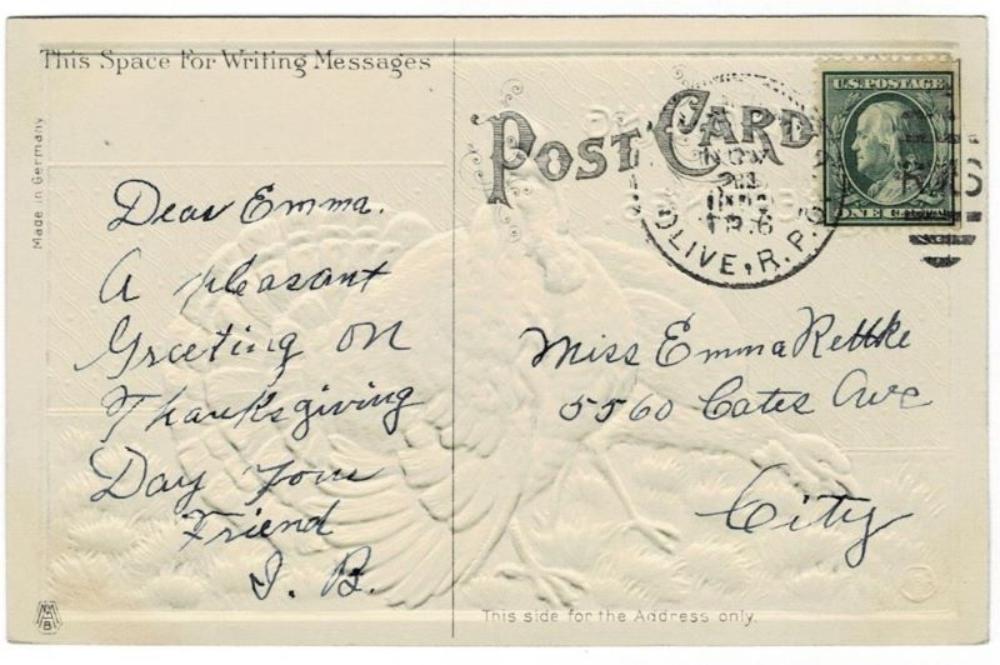 This Space For Writing Messages
Made in Germany
Dear Emma.
A pleasant
Greeting on
Thanksgiving
Day Your
Friend
J. B.
POST CARD
U.S. POSTAGE
ONE CENT
NOV
OLIVE, R.P.O.
Miss Emma Rettke
5560 Cates Ave
City
This side for the Address only.